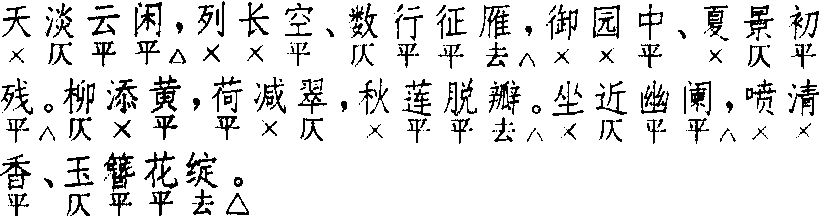 天淡云闲，列长空、数行征雁，御园中、夏景初
× 仄 平 平 △ × × 平 仄 平 平 去 △ × × 平 × 仄 平
残。柳添黄，荷减翠，秋莲脱瓣。坐近幽阑，喷清
平 △ 仄 × 平 平 × 仄 × 平 平 去 △ × 仄 平 平 △ × ×
香、玉簪花绽。
平 仄 平 平 去 △